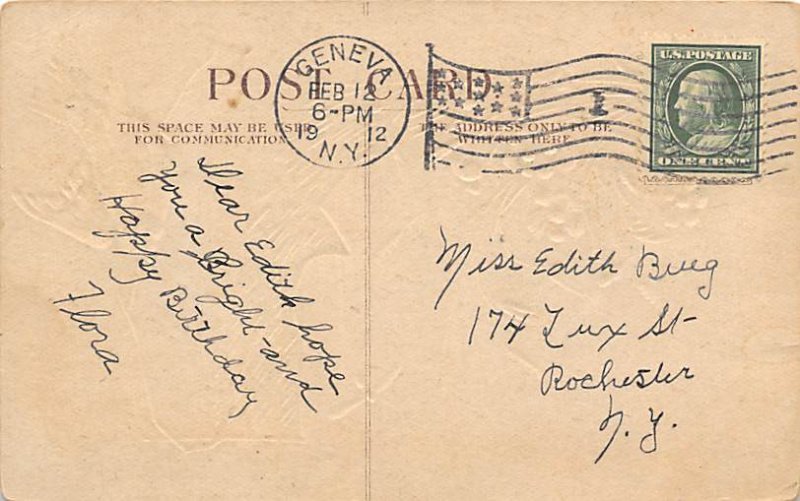 POST CARD
THIS SPACE MAY BE USED
FOR COMMUNICATION
THE ADDRESS ONLY TO BE
WRITTEN HERE
GENEVA
FEB 12
6-PM
19 12
N.Y.
1
U.S. POSTAGE
ONE CENT
Dear Edith hope
you a Bright and
Happy Birthday
Flora
Miss Edith Bueg
174 Lux St
Rochester
N.Y.